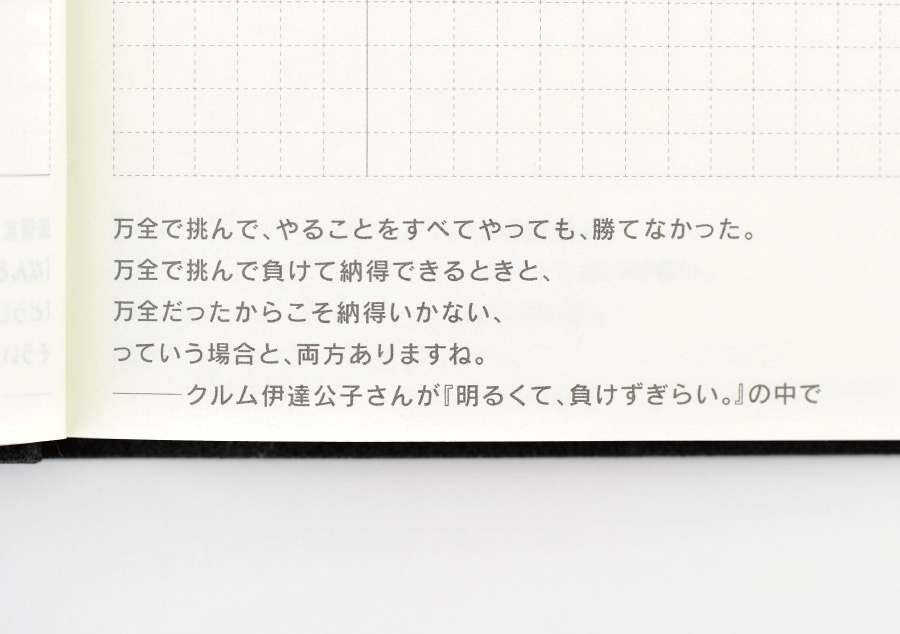 万全で挑んで、やることをすべてやっても、勝てなかった。
万全で挑んで負けて納得できるときと、
万全だったからこそ納得いかない、
っていう場合と、両方ありますね。
———クルム伊達公子さんが『明るくて、負けずぎらい。』の中で